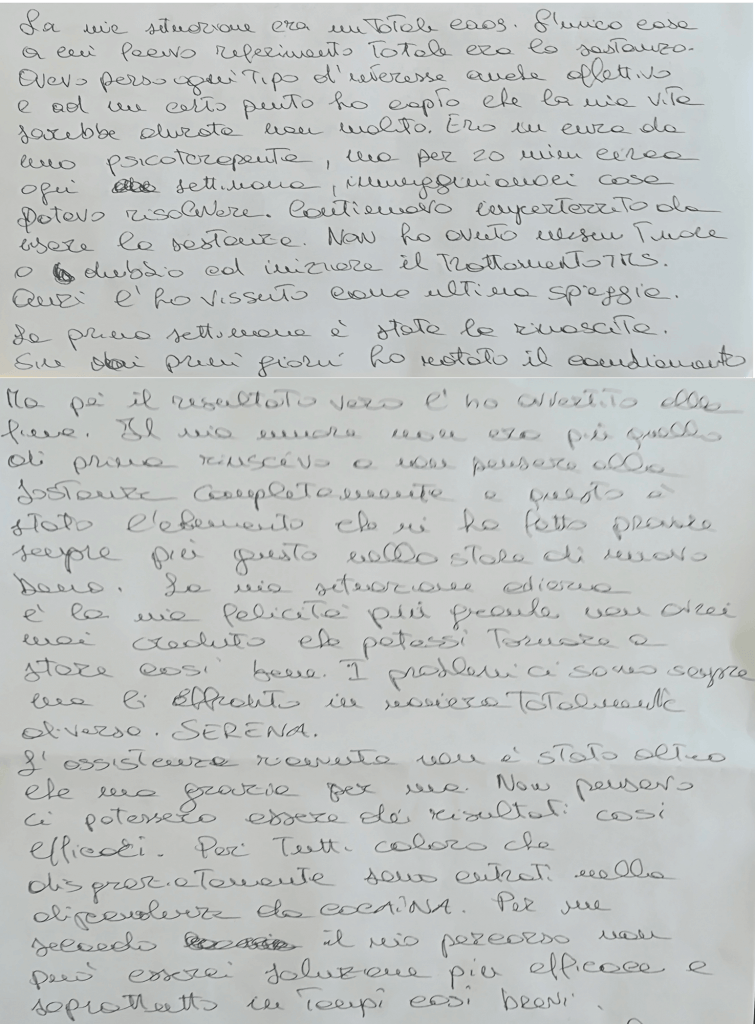 La mia situazione era un totale caos. L'unica cosa
a cui facevo riferimento totale era la sostanza.
Avevo perso ogni tipo d'interesse anche affettivo
e ad un certo punto ho capito che la mia vita
sarebbe durata non molto. Ero in cura da
uno psicoterapeuta, ma per 20 min circa
ogni settimana, immagginiamoci cosa
potevo risolvere. Continuavo imperterrito da
usare la sostanza. Non ho avuto nessun timore
o dubbio ad iniziare il trattamento TMS.
Anzi l'ho vissuto come ultima spiaggia.
La prima settimana è stata la rinascita.
Sin dai primi giorni ho notato il cambiamento
Ma poi il resultato vero l'ho avvertito alla
fine. Il mio umore non era più quello
di prima riuscivo a non pensare alla
sostanza completamente e questo è
stato l'elemento che mi ha fatto prendere
sempre più gusto nello stare di nuovo
bene. La mia situazione odierna
è la mia felicità più grande non avrei
mai creduto che potessi tornare a
stare così bene. I problemi ci sono sempre
ma li affronto in maniera totalmente
diversa. SERENA.
L'assistenza ricevuta non è stato altro
che una grazia per me. Non pensavo
ci potessero essere dei risultati così
efficaci. Per tutti coloro che
disgraziatamente sono entrati nella
dipendenza da COCAINA. Per me
secondo il mio percorso non
può esserci soluzione più efficace e
soprattutto in tempi così brevi.